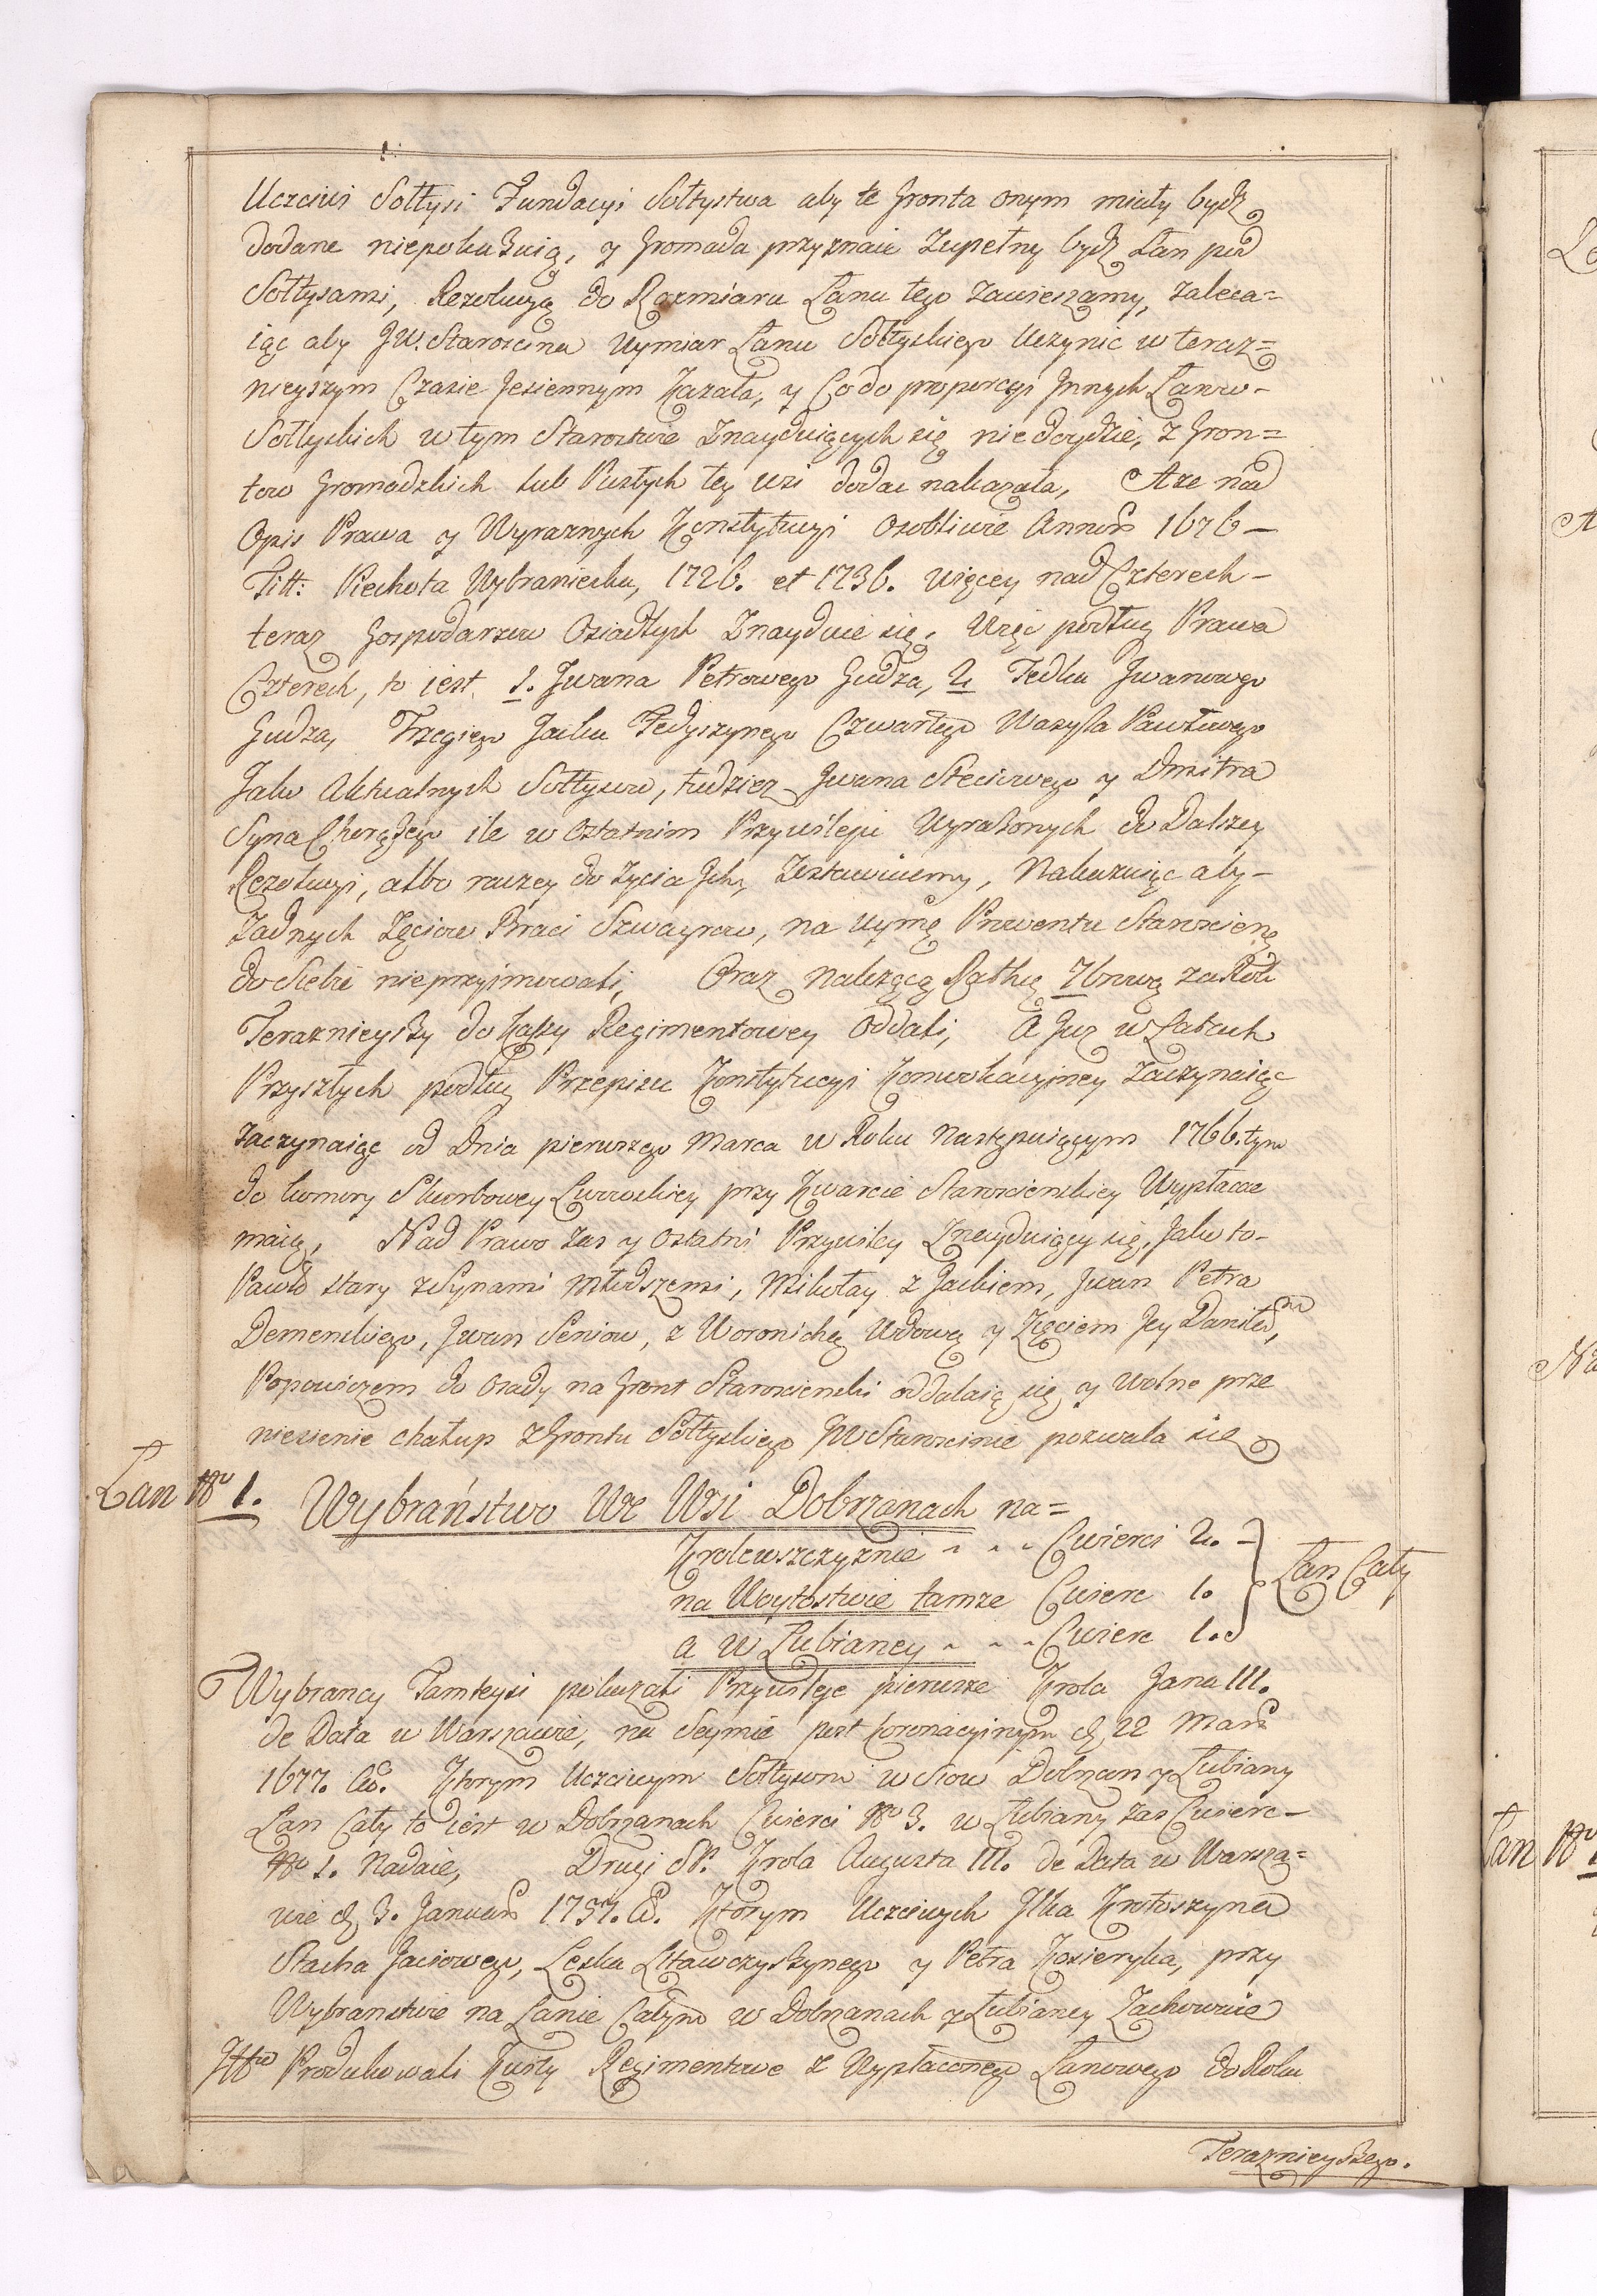 Uczciwi Sołtysi Fundacyi Sołtystwa aby te Gronta onym miały bydź
dodane niepokazuią, y Gromada przyznaie Zupełny bydź Łan pod
Sołtysami, Rezolucyą do Rozmiaru Łanu tego Zawieszamy, zaleca=
iąc aby JW. Starościna Wymiar Łanu Sołtyskiego Uczynić w teraz=
nieyszym Czasie Jesiennym Kazała, y Co do proporcyi Innych Łanow-
Sołtyskich w tym Starostwie Znayduiących się nie doydzie, z Gron=
tow Gromadzkich lub Pustych tey wsi dodac nakazała, A ze nad
Opis Prawa y Wyraznych Konstytucyi Osobliwie Annor 1676-
Titt: Piechota Wybraniecka, 1726. et 1736. więcey nad Czterech-
teraz Gospodarzow Osiadłych Znayduie się, Więc podług Prawa
Czterech, to iest. 1. Jwana Petrowego Gudza, 2. Fedka Jwanowego
Gudza, Trzegiego Jacka Fedyszynego Czwartego Wasyla Pawłowego
Jako Aktualnych Sołtysow, tudziez Jwana Steciowego y Dmitra
Syna Chorążego ile w Ostatnim Przywileju Wyrażonych do Dalszey
Rezolucyi, albo raczey do zycia Jch, Zostawuiemy, Nakazuiąc aby-
Zadnych Zęciow Braci Szwagrow, na uymę Prowentu Starościnę
do Siebie nieprzyjmowali, Oraz należącą Rathę 7brową za Rok
Teraznieyszy do Kassy Regimentowey Oddali, A Juz w Latach
Przyszłych podług Przepisu Konstytucyi Konwokacyiney zaczynaiąc
zaczynaiąc od Dnia pierwszego Marca w Roku Następuiącym 1766.tym
do komory Skarbowey Lwowskiey przy Kwarcie Starościnskiey Wypłacac
maią, Nad Prawo zas y ostatni Przywiley Znayduiący się, Jako to-
Pawło stary z Synami młodszemi, Mikołay z Jackiem, Jwan Petra
Demenskiego, Jwan Seniow, z Woronichą Wdową y Zięciem Jey Daniłem,
Popowiczem do osady na Gront Starościnski oddalaią się y Wolne prze
niesienie chałup z Grontu Sołtyskiego JW Starościnie pozwala się
Łan Nro 1. Wybraństwo We Wsi Dobrzanach na=
Krolewszczyznie - - - Cwierci 2. -
na Woytostwie tamze Cwierc 1. Łan Cały
a w Lubianey - - - Cwierc 1.
Wybrancy Tamteysi pokazali Przywileje pierwsze Krola Jana III.
de Data w Warszawie, na Seymie post Coronacyinym d. 22 Mars
1677. Ao. Ktorym Uczciwym Sołtysom w Siow Dobrzan y Lubiany
Łan Cały to iest w Dobrzanach Cwierci Nro 3. w Lubiany zas Cwierc-
Nro 1. Nadaie, Drugi SP. Krola Augusta III. de Data w Warsza=
wie d. 3. January 1757. Ao. Ktorym Uczciwych Ilka Krotoszyna
Stacha Jaciowego, Leska Litawczyszynego y Petra Kosieryka, przy
Wybranstwie na Łanie Całym w Dobrzanach y Lubianey Zachowuie
Produkowali Kwity Regimentowe z Wypłaconego Łanowego do Roku
Teraznieyszego.